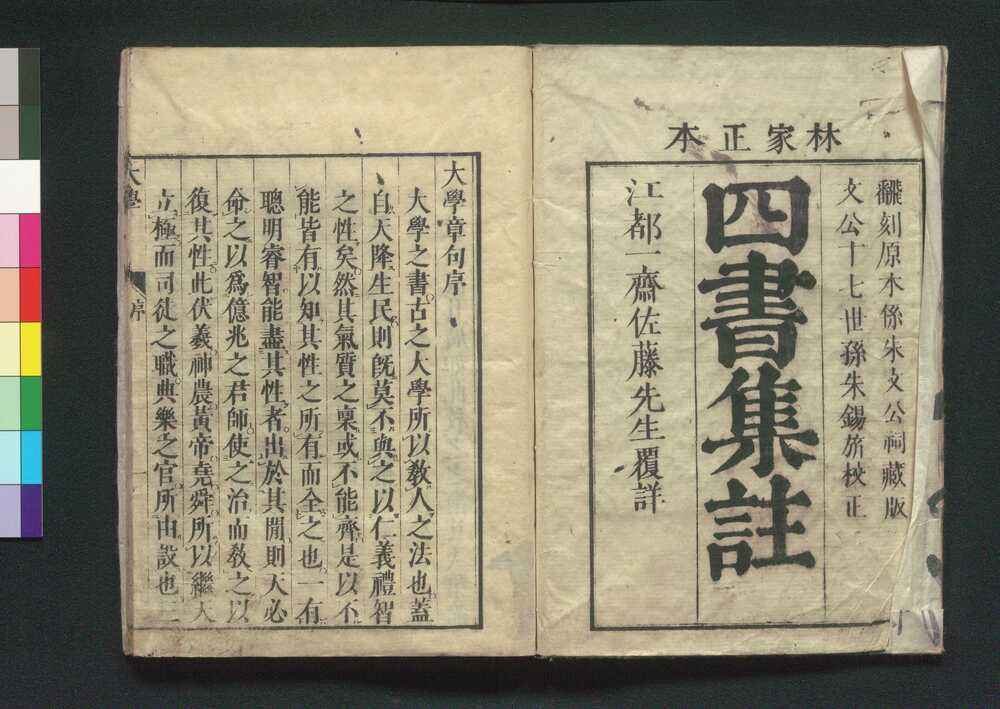 林家正本
飜刻原本係朱文公祠藏版
文公十七世孫朱錫旂校正
四書集註
江都一齋佐藤先生覆詳
大學章句序
大學之書古之大學所以敎人之法也蓋
自天降生民則旣莫不與之以仁義禮智
之性矣然其氣質之稟或不能齊是以不
能皆有以知其性之所有而全之也一有
聰明睿智能盡其性者出於其閒則天必
命之以爲億兆之君師使之治而敎之以
復其性此伏羲神農黃帝堯舜所以繼天
立極而司徒之職典樂之官所由設也三
大學
序